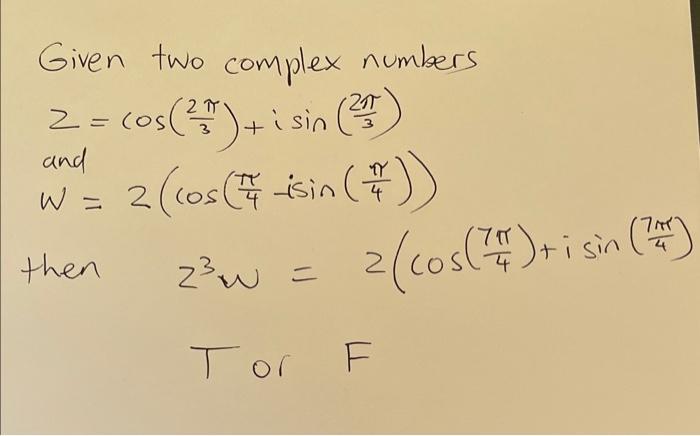 Given two complex numbers
z = cos(2π/3) + i sin(2π/3)
and
w = 2(cos(π/4 - isin(π/4))
then z³w = 2(cos(7π/4) + i sin(7π/4)
T or F